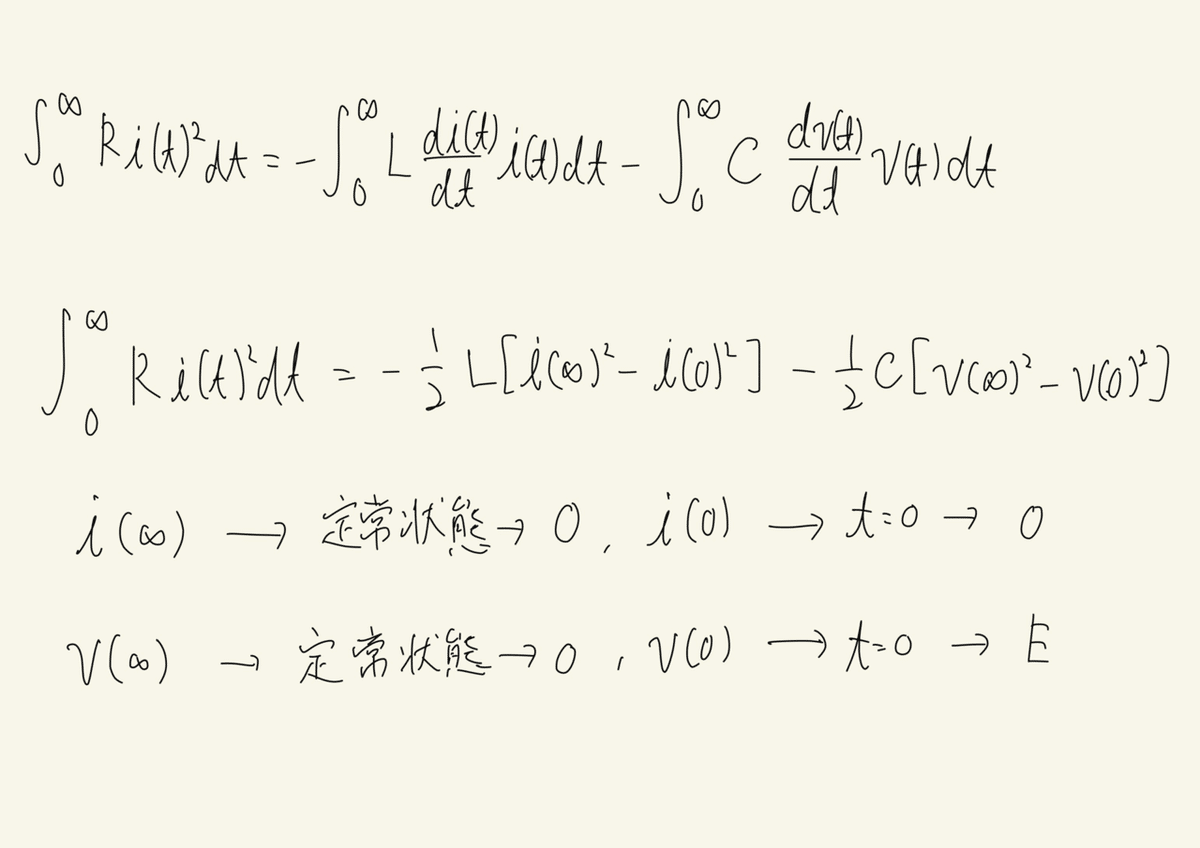 ∫₀^∞ Ri(t)²dt = -∫₀^∞ L di(t)/dt i(t)dt - ∫₀^∞ C dv(t)/dt v(t)dt
∫₀^∞ Ri(t)²dt = -1/2 L[i(∞)² - i(0)²] - 1/2 C[v(∞)² - v(0)²]
i(∞) → 定常状態 → 0, i(0) → t=0 → 0
v(∞) → 定常状態 → 0, v(0) → t=0 → E